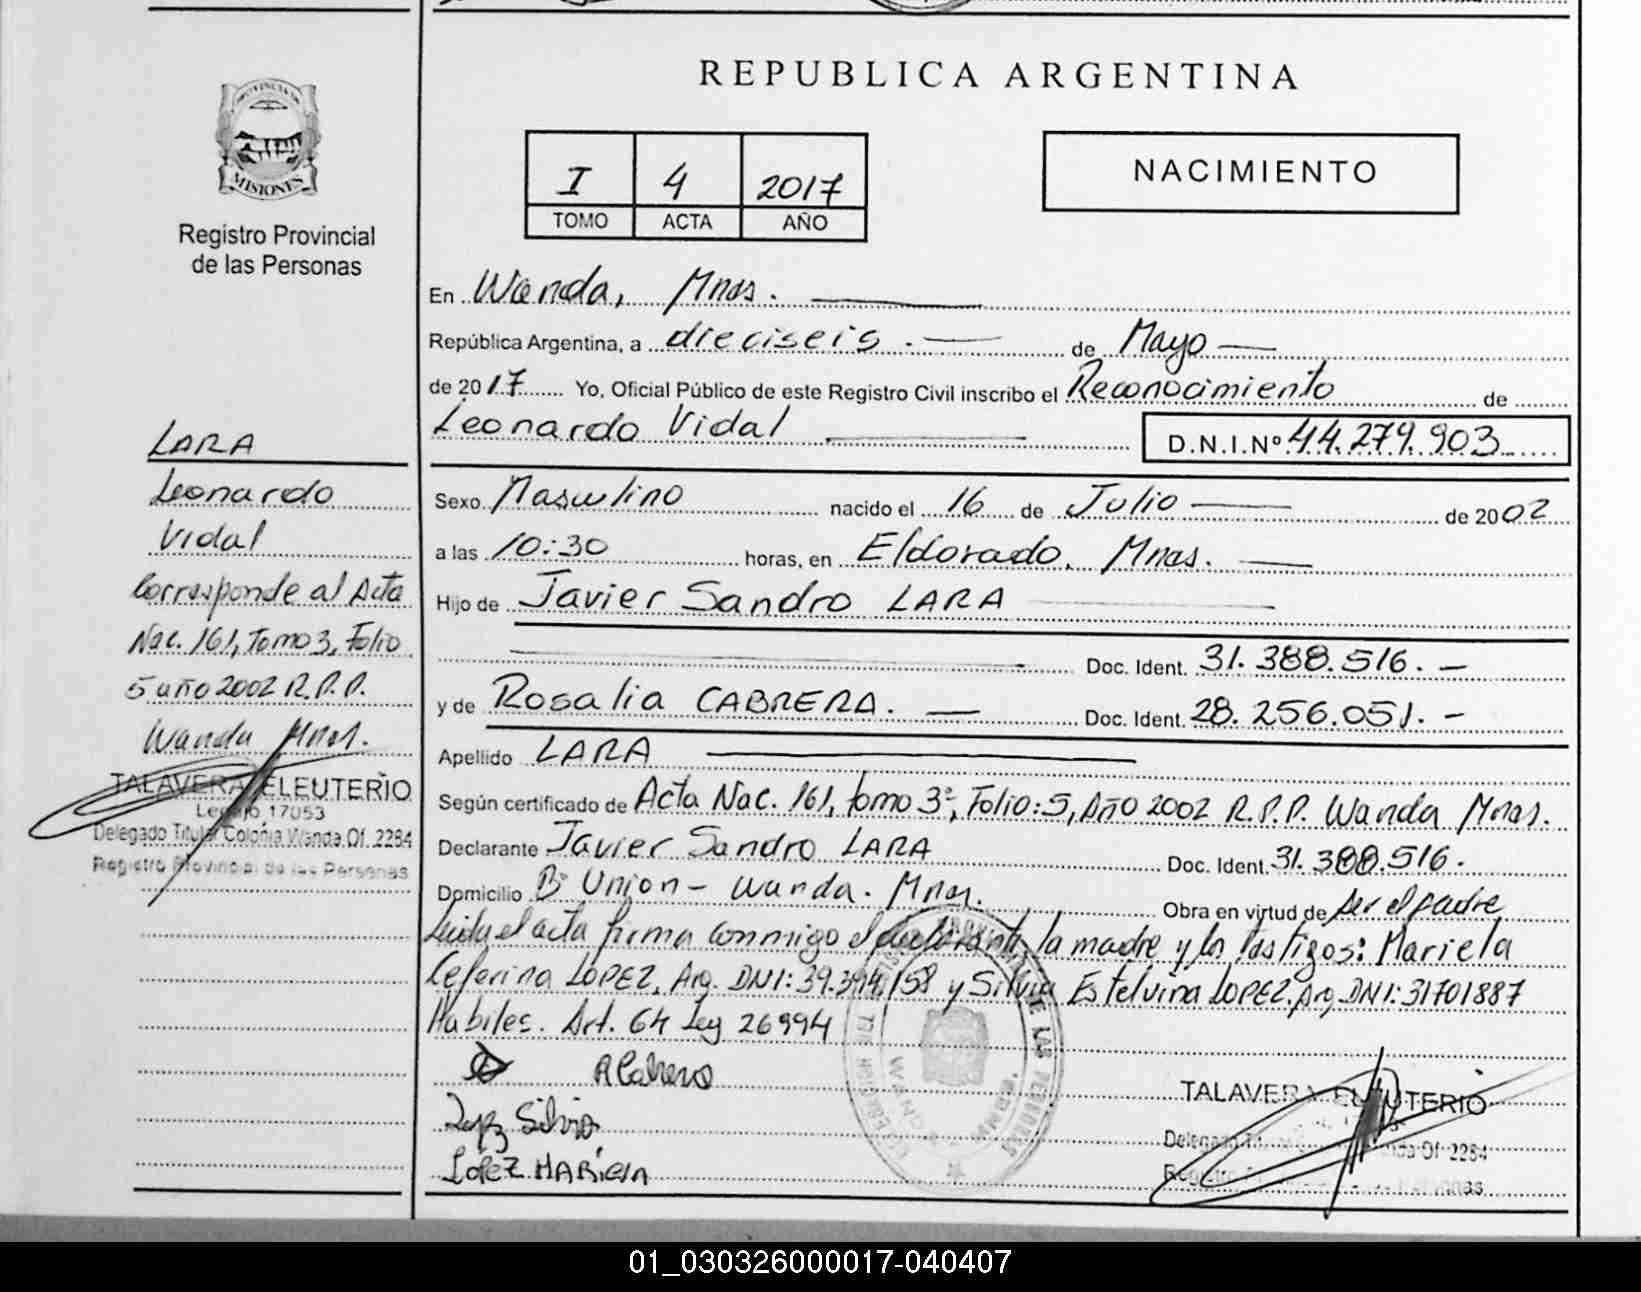 PROVINCIA DE
MISIONES
Registro Provincial
de las Personas
LARA
Leonardo
Vidal
Corresponde al Acta
Nac. 161, Tomo 3, Folio
5 año 2002 R.P.P.
Wanda Mnes.
TALAVERA ELEUTERIO
Legajo 17053
Delegado Titular Colonia Wanda Of. 2284
Registro Provincial de las Personas
REPUBLICA ARGENTINA
I 4 2017
TOMO ACTA AÑO
NACIMIENTO
En Wanda, Mnes.
República Argentina, a dieciseis.- de Mayo
de 2017 Yo, Oficial Público de este Registro Civil inscribo el Reconocimiento de
Leonardo Vidal D.N.I.Nº 44.279.903
Sexo Masculino nacido el 16 de Julio de 2002
a las 10:30 horas, en Eldorado, Mnes.
Hijo de Javier Sandro LARA
Doc. Ident. 31.388.516.-
y de Rosalia CABRERA. Doc. Ident. 28.256.051.-
Apellido LARA
Según certificado de Acta Nac. 161, tomo 3º, Folio: 5, Año 2002 R.P.P. Wanda Mnes.
Declarante Javier Sandro LARA Doc. Ident. 31.388.516.
Domicilio Bº Union - Wanda. Mnes. Obra en virtud de ser el padre
Leida el acta firma conmigo el declarante, la madre y los testigos: Mariela
Ceferina LOPEZ, Arg. DNI: 39.394.158 y Silvia Estelvina LOPEZ, Arg. DNI: 31701887
Habiles. Art. 64 Ley 26994
R Cabrera
Lopez Silvia
LOPEZ MARIELA
TALAVERA ELEUTERIO
Of 2284
01_030326000017-040407